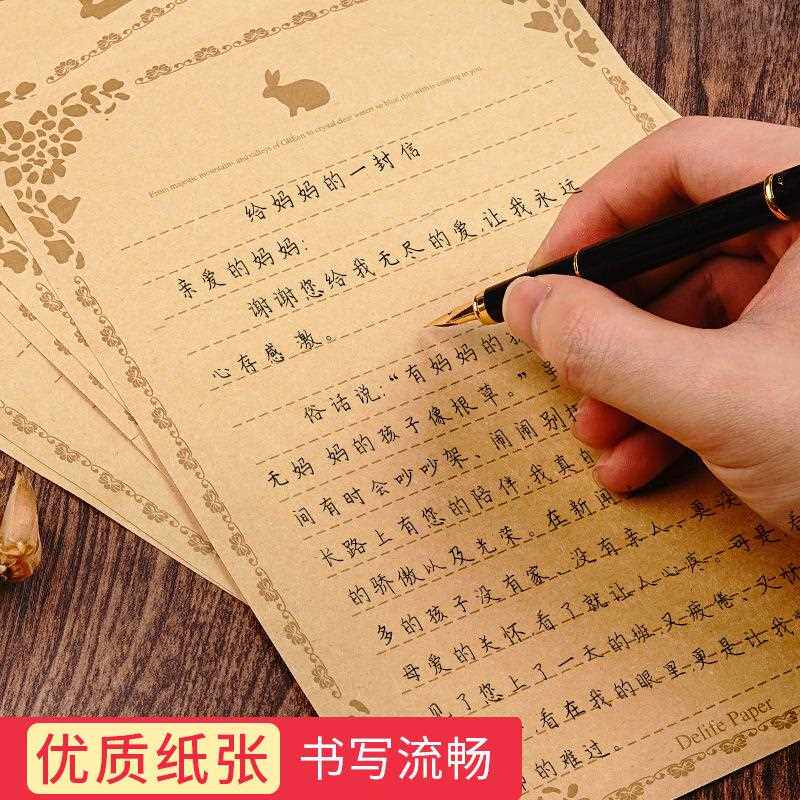 From majestic mountains and valleys of Green to crystal clear water so blue, this wish is coming to you.
给妈妈的一封信
亲爱的妈妈:
谢谢您给我无尽的爱,让我永远
心存感激。
俗话说:“有妈妈的
无妈妈的孩子像根草。”
间有时会吵吵架、闹闹别
长路上有您的陪伴,我真的
的骄傲以及光荣。在新闻
多的孩子没有家、没有亲人,更没
母爱的关怀,看了就让人心疼。可是看
见了您上了一天的班,又疲倦、又
看在我的眼里,更是让我
的难过。
Delife Paper
优质纸张 书写流畅